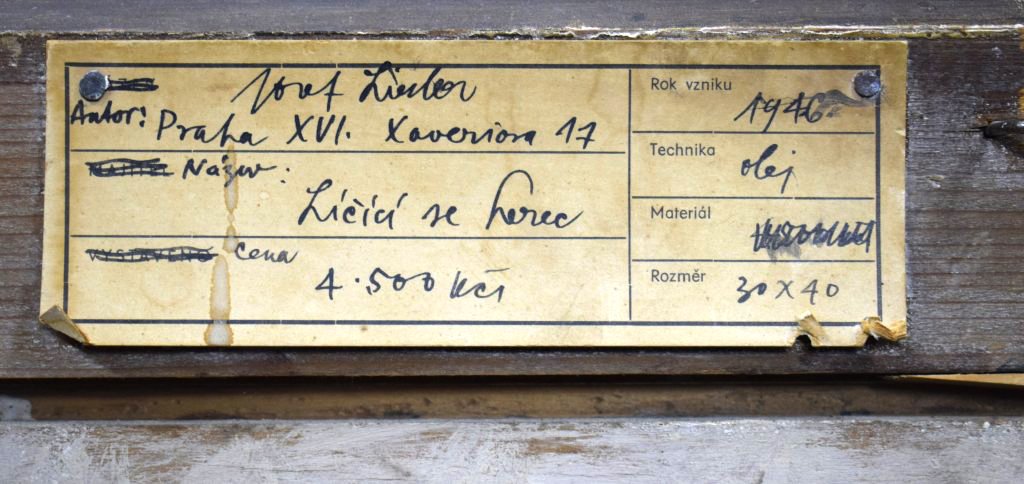 Josef Liesler
Autor: Praha XVI. Xaveriova 17
Název:
Líčící se herec
VYSTAVENO Cena
4.500 Kčs
Rok vzniku
1946
Technika
olej
Materiál
Rozměr
30 x 40